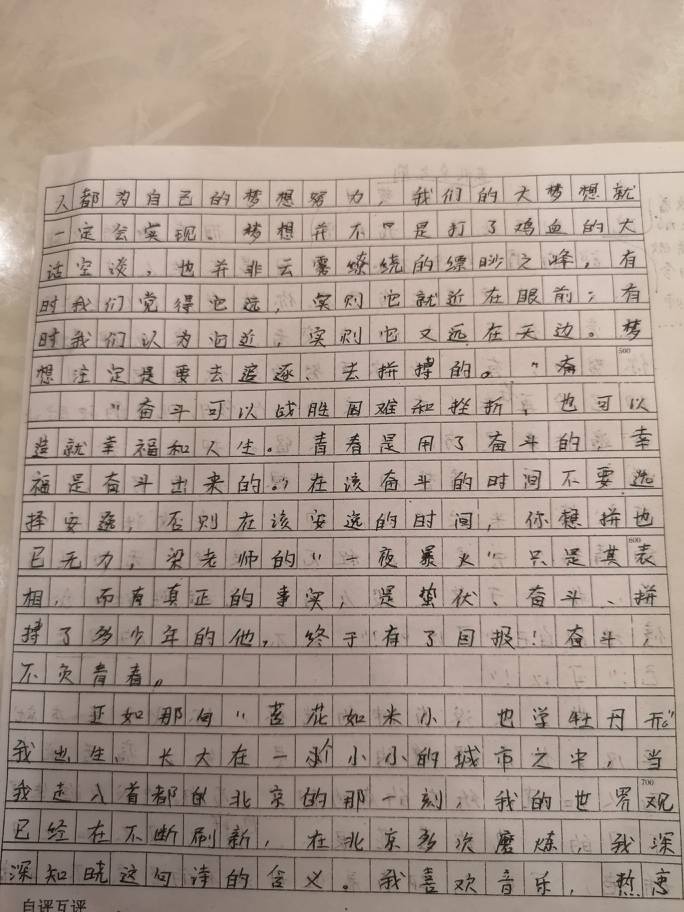 人都为自己的梦想努力，我们的大梦想就
一定会实现。梦想并不只是打了鸡血的大
话空谈，也并非云雾缭绕的缥眇之峰，有
时我们觉得它远，实则它就近在眼前；有
时我们认为它近，实则它又远在天边。梦
想注定是要去追逐、去拼搏的。"奋
500
"奋斗可以战胜困难和挫折，也可以
造就幸福和人生。青春是用了奋斗的，幸
福是奋斗出来的。"在该奋斗的时间不要选
择安逸，否则在该安逸的时间，你想拼也
已无力，梁老师的"一夜暴火"只是其表
600
相，而真正的事实，是蛰伏、奋斗、拼
搏了多少年的他，终于有了回报！奋斗，
不负青春。
正如那句"苔花如米小，也学牡丹开"
我出生、长大在一个小小的城市之中，当
我走入首都的北京的那一刻，我的世界观
700
已经在不断刷新，在北京多次磨炼，我深
深知晓这句诗的含义。我喜欢音乐，热
自评互评